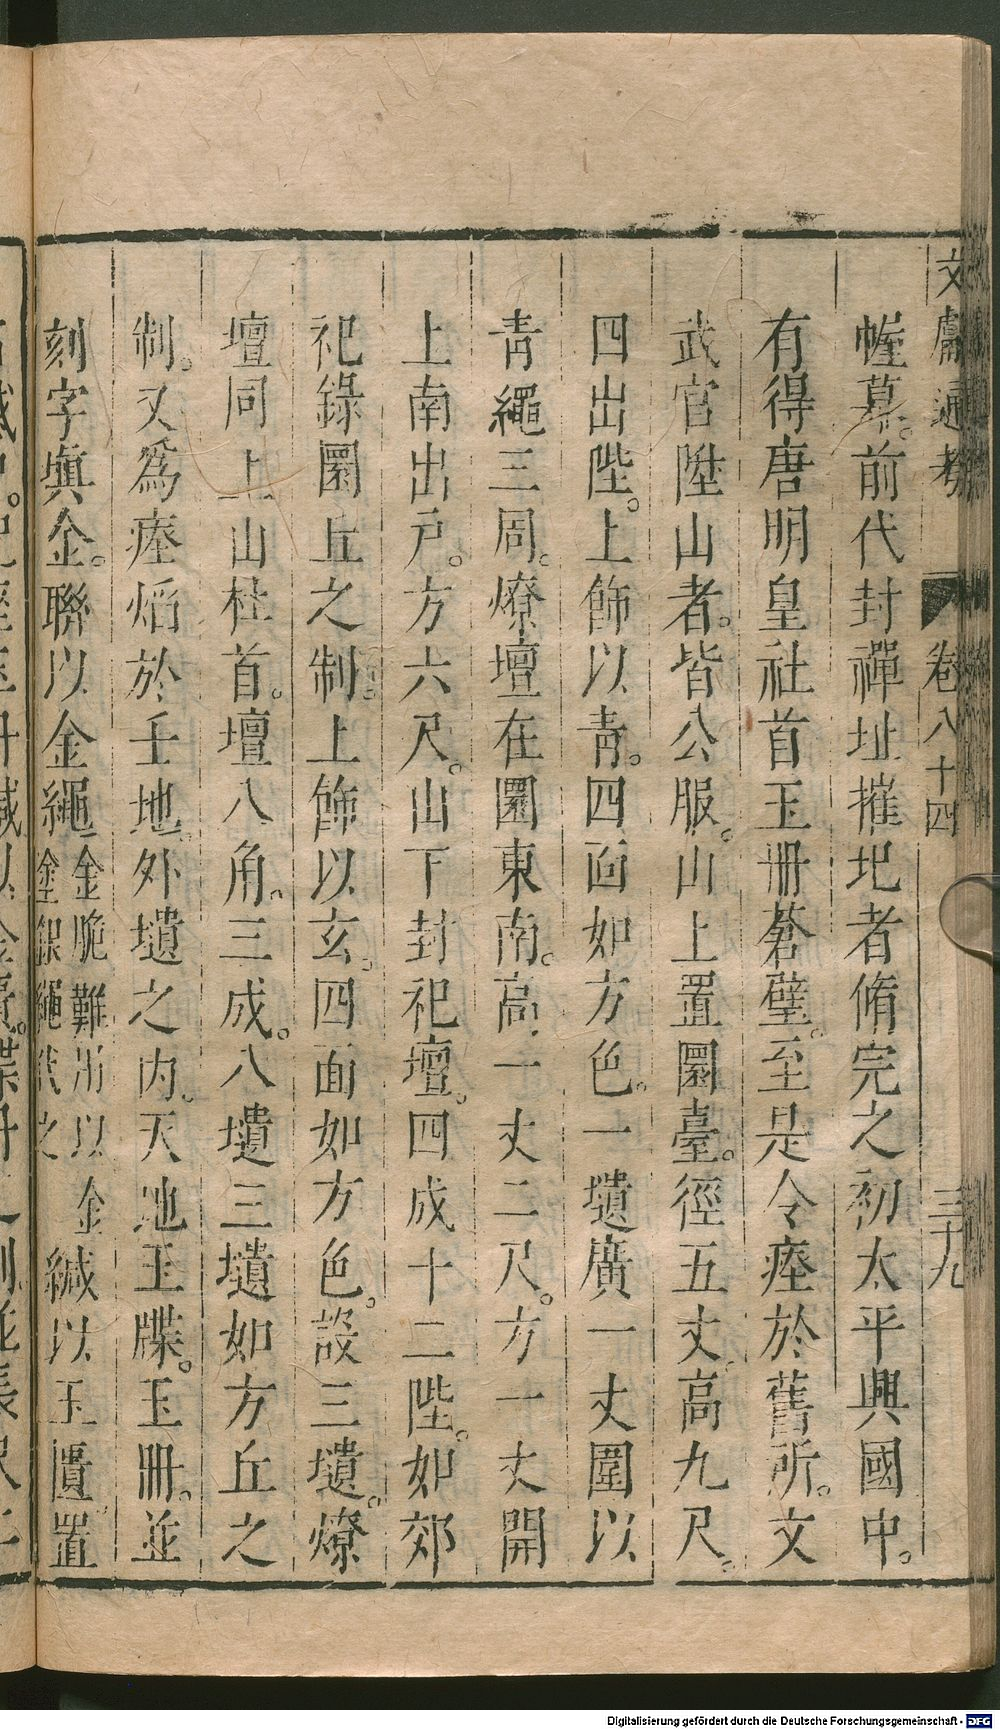 文獻通考 卷八十四 三十九
幄幕。前代封禪址摧圮者脩完之初太平興國中。
有得唐明皇社首玉冊蒼璧。至是令瘞於舊所。文
武官陞山者。皆公服。山上置圜臺。徑五丈高九尺。
四出陛。上飾以青。四面如方色。一壝廣一丈圍以
青繩三周。燎壇在圜東南。高一丈二尺。方一丈開
上南出戶。方六尺。山下封祀壇。四成十二陛。如郊
祀錄圜丘之制。上飾以玄。四面如方色。設三壝。燎
壇同上山社首。壇八角。三成。八壝三壝如方丘之
制。又為瘞埳於壬地。外壝之內。天地玉牒。玉冊。並
刻字塡金。聯以金繩金脆難用以金塗銀繩代之緘以玉匱置
Digitalisierung gefördert durch die Deutsche Forschungsgemeinschaft - DFG